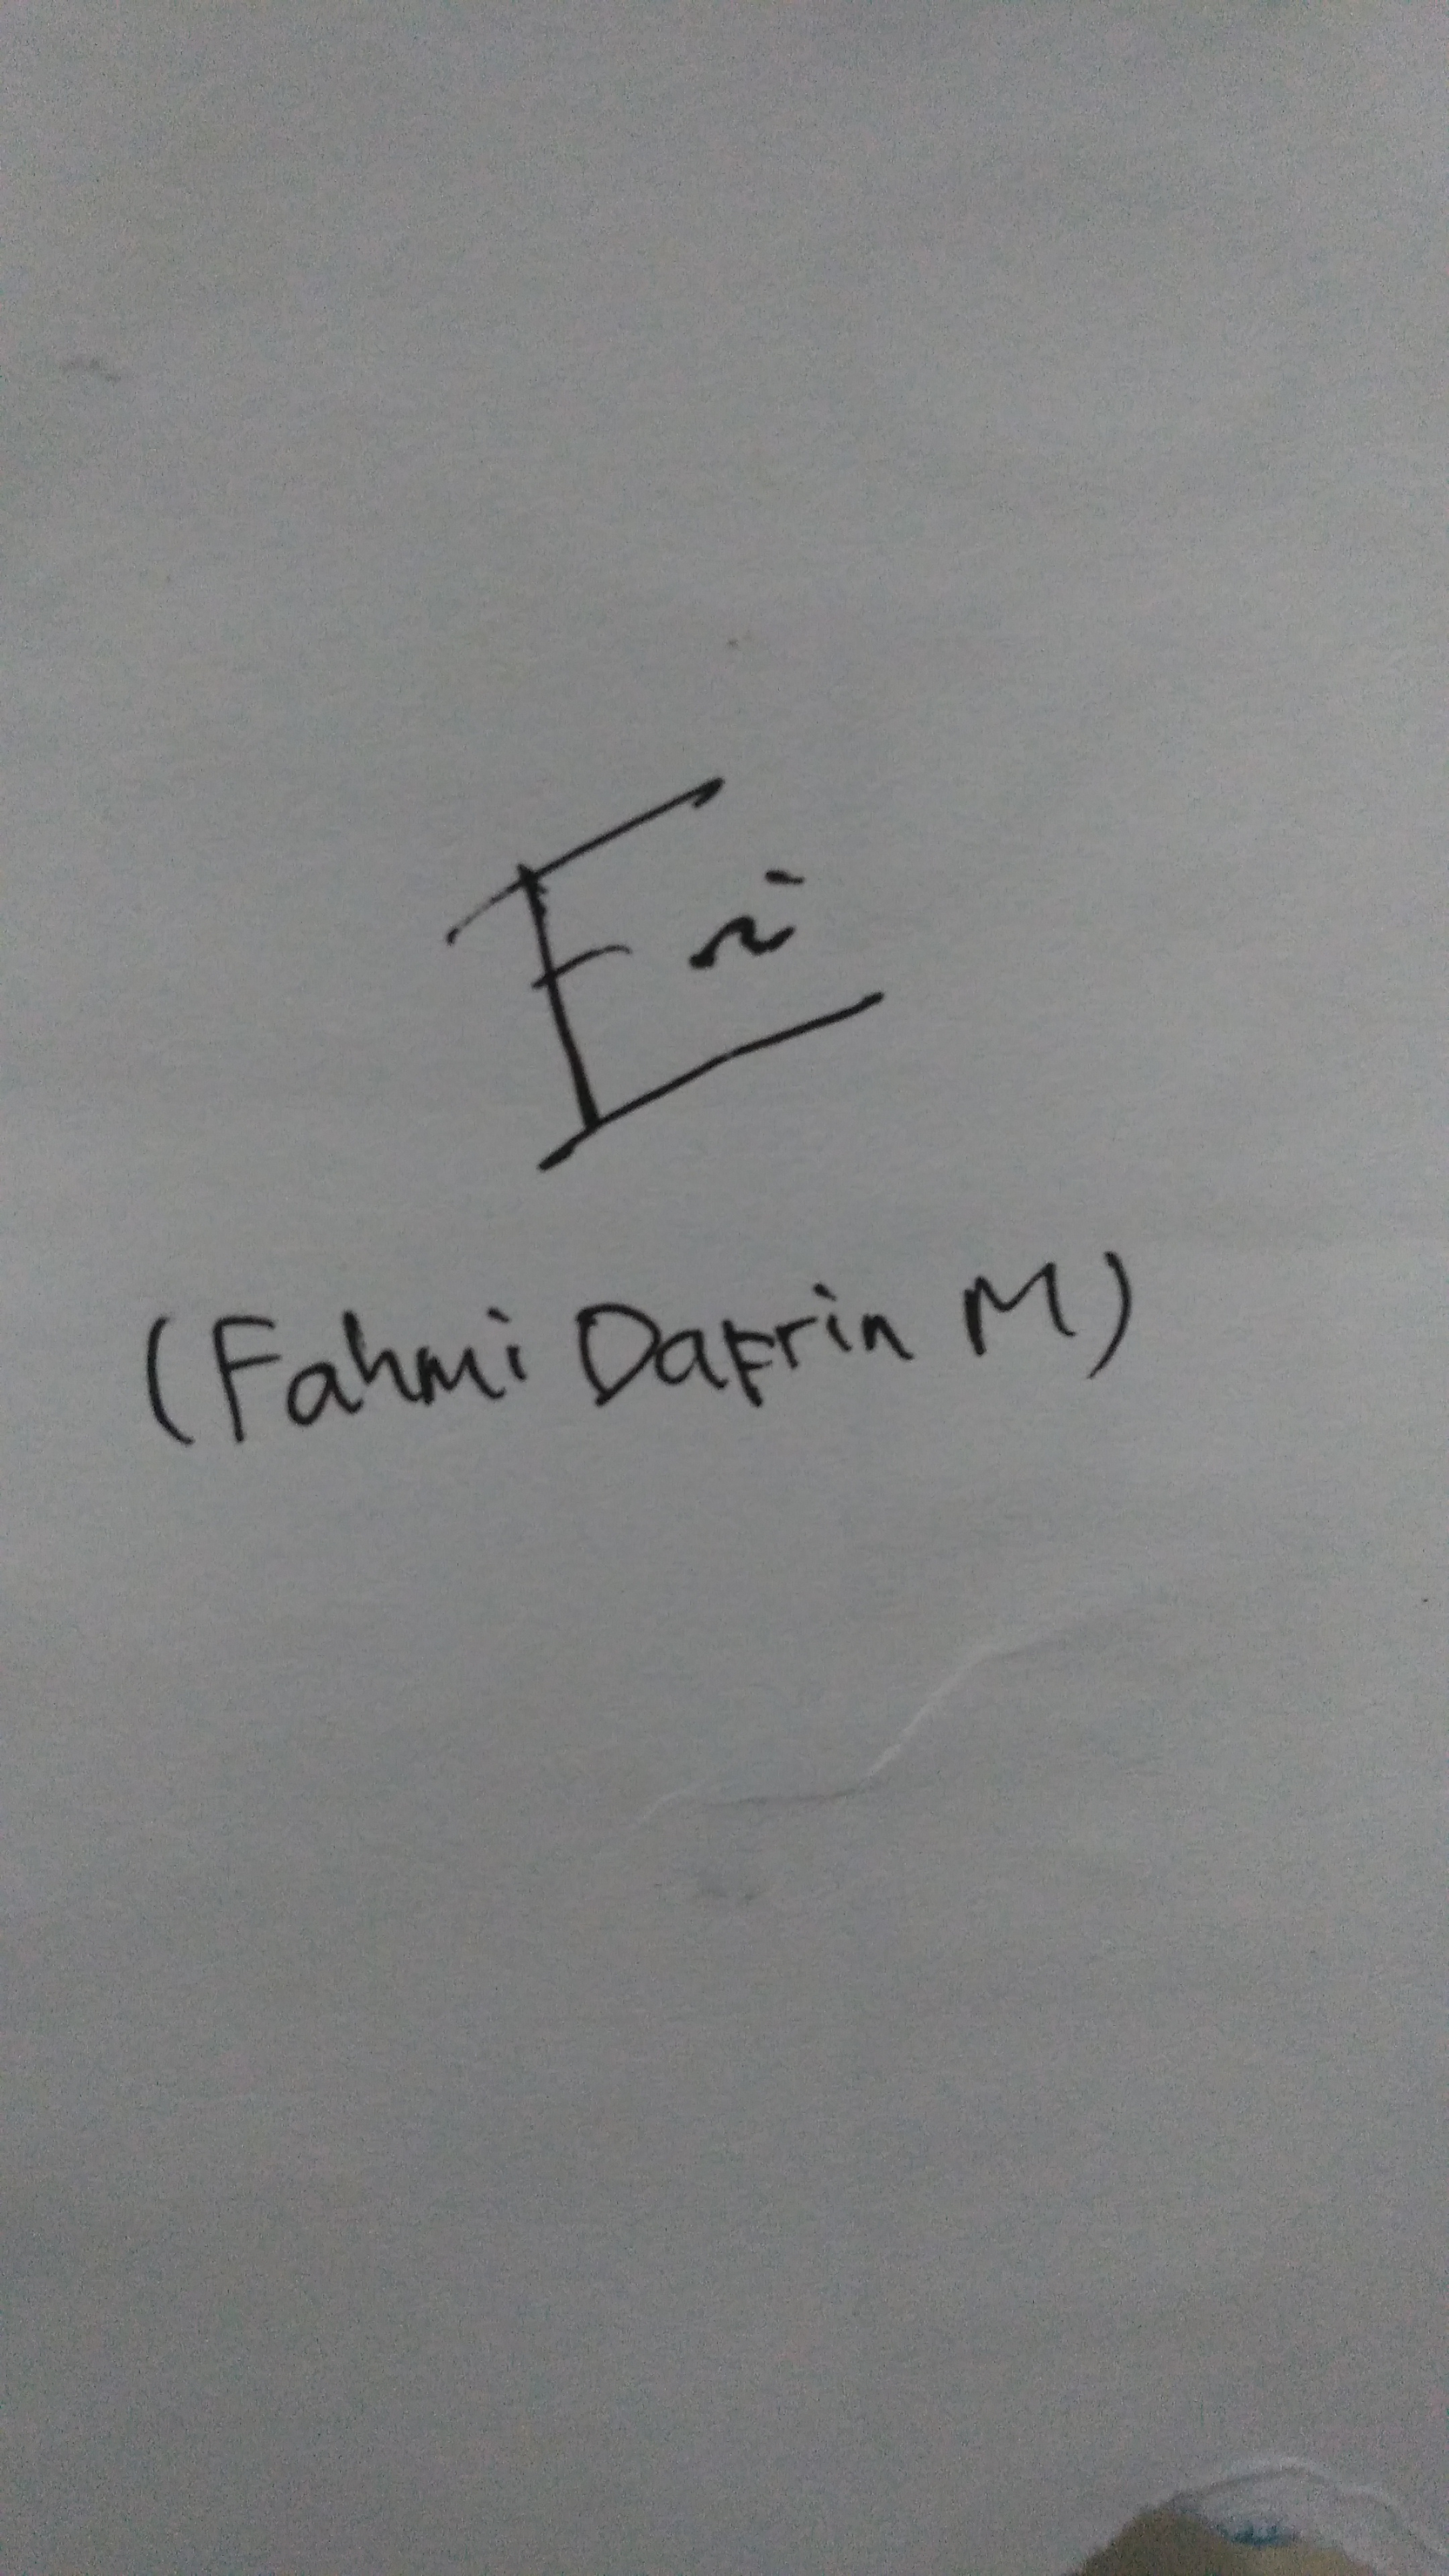 (Fahmi Dafrin M)